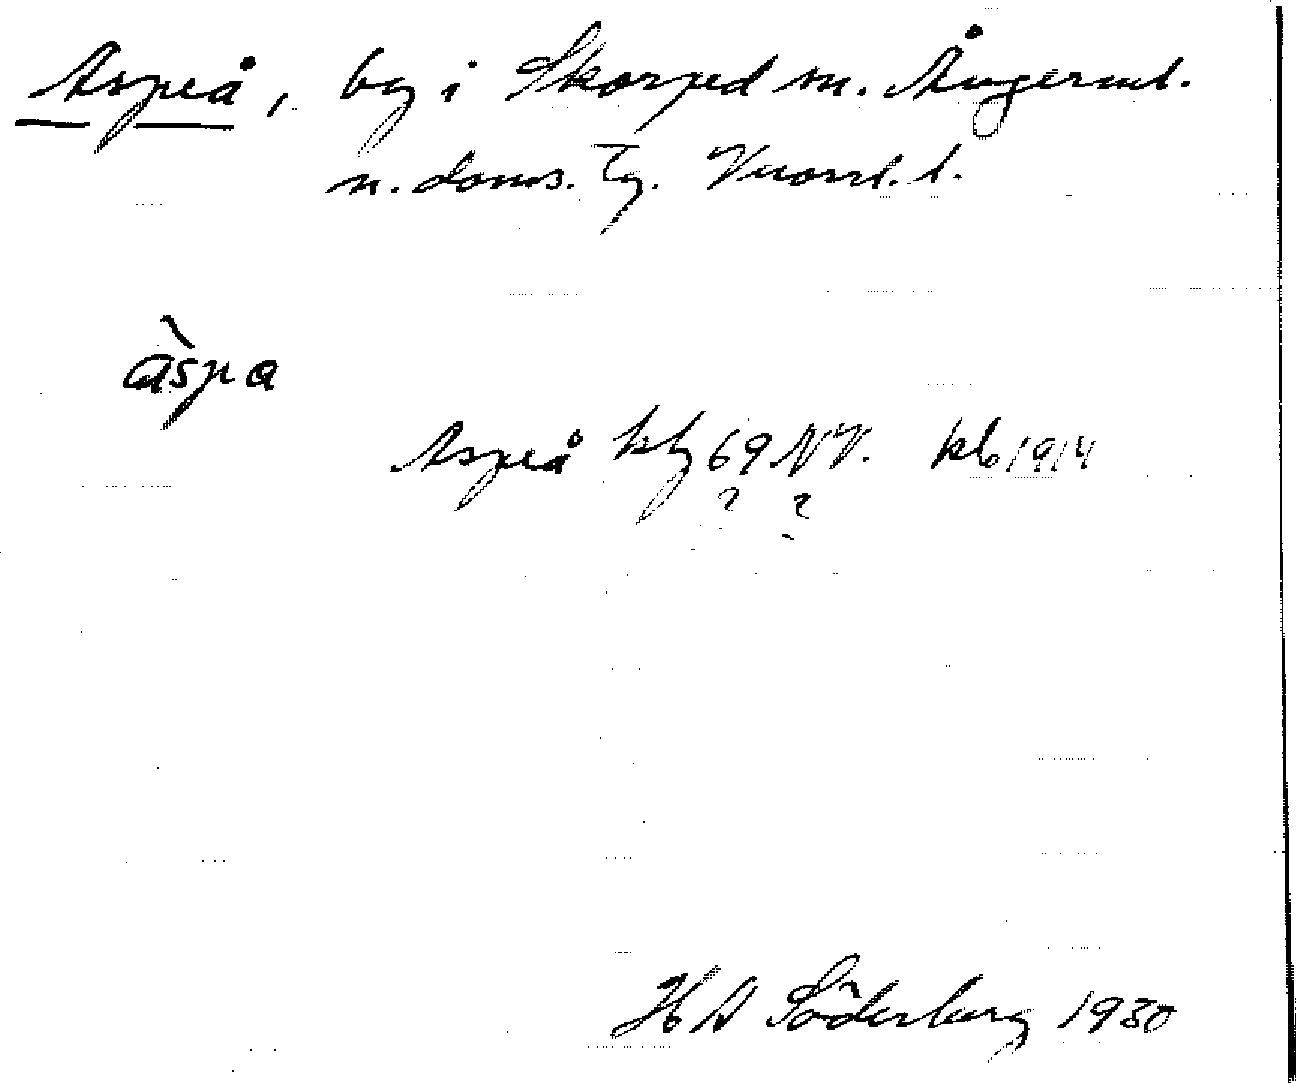 Aspeå, by i Skorped sn. Ångerml.
n. doms. tg. Vnorrl. l.
àspa
Aspeå kbl 69 NV. kb 1914
? ?
H A Söderberg 1930